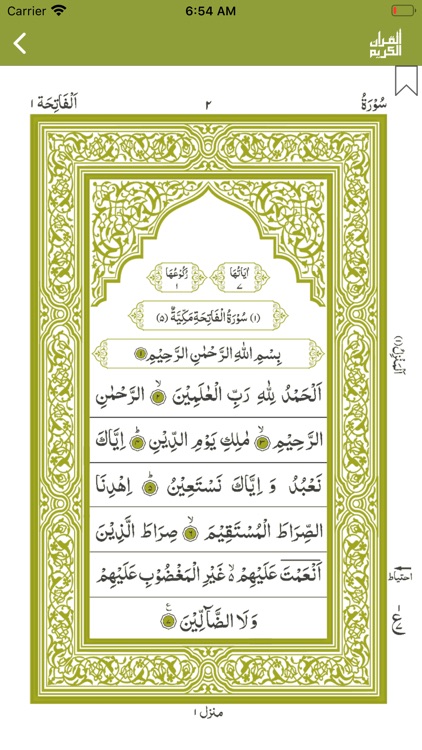 Carrier 6:54 AM
القرآن الكريم
سُوْرَةُ ٢ اَلْفَاتِحَة ١
اٰيَاتُهَا ٧ رُكُوْعُهَا ١
(١) سُوْرَةُ الْفَاتِحَةِ مَكِّيَّةٌ (٥)
بِسْمِ اللّٰهِ الرَّحْمٰنِ الرَّحِيْمِ ١
اَلْحَمْدُ لِلّٰهِ رَبِّ الْعٰلَمِيْنَ ۙ ٢ الرَّحْمٰنِ
الرَّحِيْمِ ۙ ٣ مٰلِكِ يَوْمِ الدِّيْنِ ؕ ٤ اِيَّاكَ
نَعْبُدُ وَ اِيَّاكَ نَسْتَعِيْنُ ؕ ٥ اِهْدِنَا
الصِّرَاطَ الْمُسْتَقِيْمَ ۙ ٦ صِرَاطَ الَّذِيْنَ
اَنْعَمْتَ عَلَيْهِمْ ۙ۬ غَيْرِ الْمَغْضُوْبِ عَلَيْهِمْ
وَلَا الضَّآلِّيْنَ ۧ ٧
اَلْمَنْزِلُ (١)
احتياط
ع
منزل ١